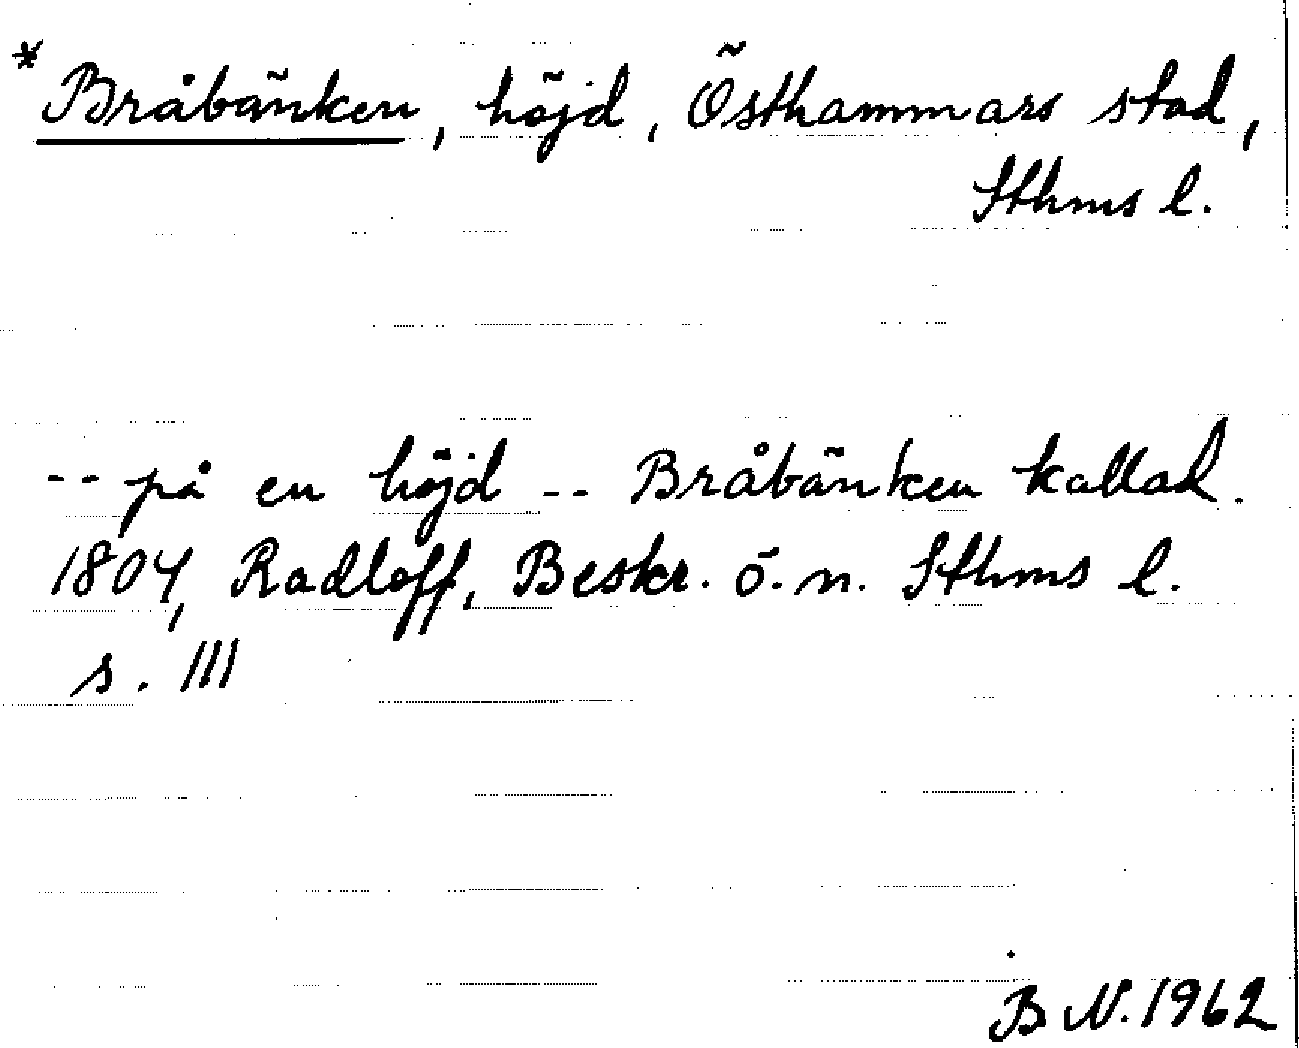 * Bråbänken, höjd, Östhammars stad,
Sthms l.
-- på en höjd -- Bråbänken kallad.
1804, Radloff, Beskr. ö. n. Sthms l.
s. 111
B N. 1962